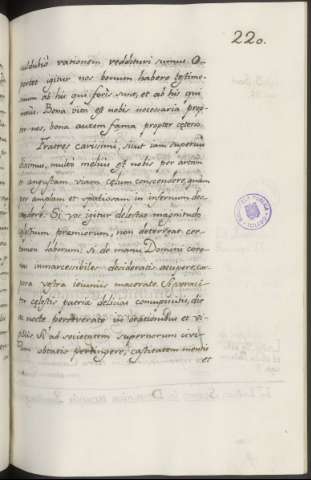 220.
vidubió rationem reddituri sumus. O-
portet igitur nos bonum habere testimo-
nium ab his qui foris sunt, et ab his qui
intus. Bona vita est nobis necessaria prop-
ter nos, bona autem fama propter ceteros.
Fratres carissimi, sicut iam superius
diximus, multo melius est nobis per artam
et angustam viam celum conscendere, quàm
per amplam et spatiosam in infernum des-
cendere. Si vos igitur delectat magnitudo
premiorum, non deterreat cer-
tamen laborum: si de manu Domini coro-
nas inmarcessibiles desideratis accipere, cor-
pora vestra ieiuniis macerate. Si
celestis patria delicias concupiscitis, die
ac nocte perseverate in orationibus et vi-
giliis. Si ad societatem supernorum civi-
um obtatis pertingere, castitatem mentis
et